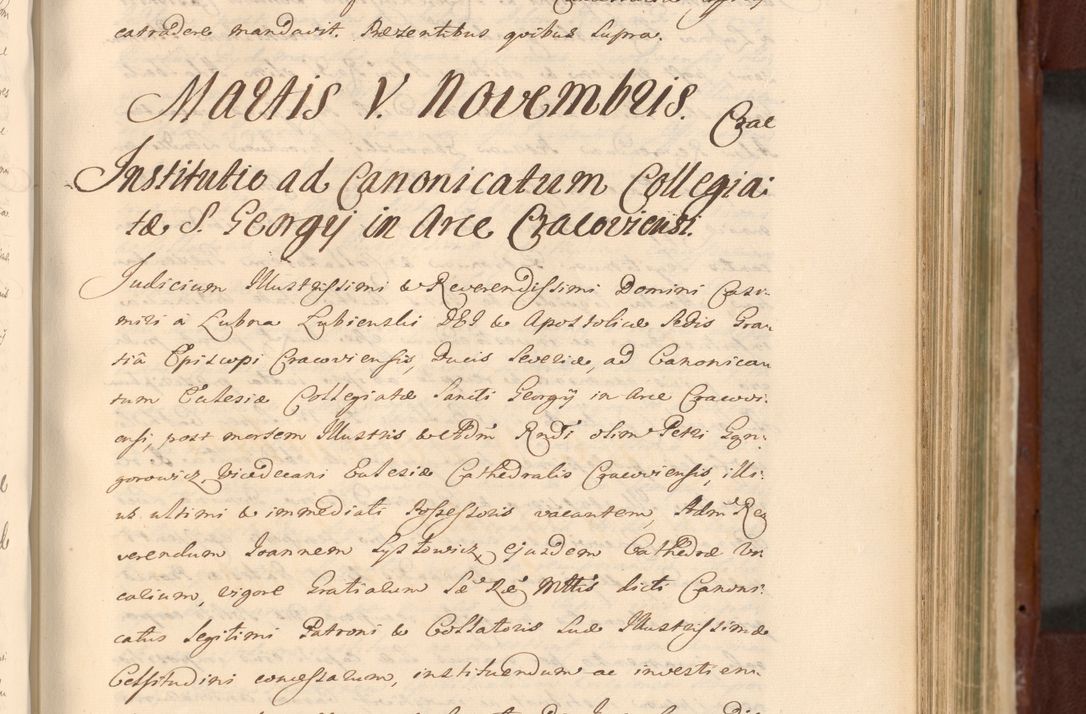 extradere mandavit. Præsentibus quibus supra.
Martis V. Novembris.
Crac
Institutio ad Canonicatum Collegia:
tæ S. Georgij in Arce Cracoviensi.
Judicium Illustrissimi & Reverendissimi Domini Casi:
miri à Lubna Lubienski DEI & Apostolicæ Sedis Gra:
tiâ Episcopi Cracoviensis, Ducis Severiæ, ad Canonica:
tum Ecclesiæ Collegiatæ Sancti Georgij in Arce Cracovi:
ensi, post mortem Illustris & Adm Rndi olim Petri
gorowicz Vicedecani Ecclesiæ Cathedralis Cracoviensis, illi:
us ultimi & immediati Possessoris vacantem, Adm Re:
verendum Joannem Lystowicz ejusdem Cathedræ Vi:
carium, vigore Gratiarum Sæ Ræ Mttis dicti Canoni:
catus legitimi Patroni & Collatoris Suæ Illustrissimæ
Celsitudini concessarum, instituendum ac investien: